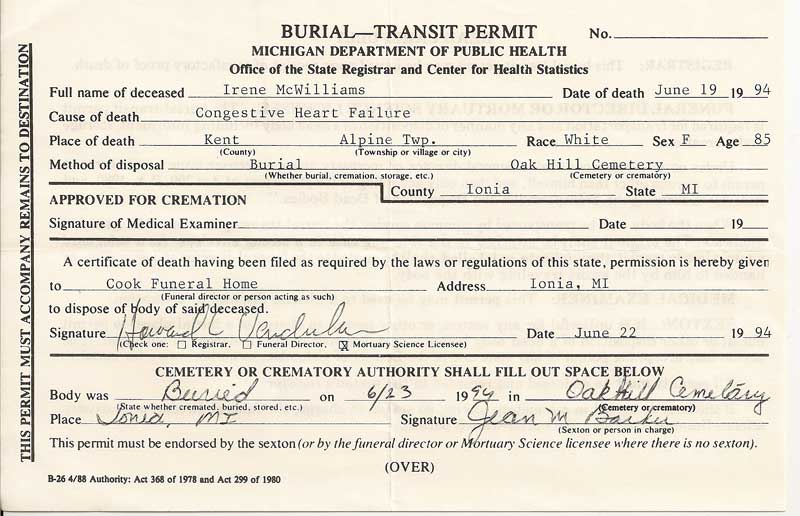 BURIAL—TRANSIT PERMIT No.
MICHIGAN DEPARTMENT OF PUBLIC HEALTH
Office of the State Registrar and Center for Health Statistics
Full name of deceased Irene McWilliams Date of death June 19 19 94
Cause of death Congestive Heart Failure
Place of death Kent Alpine Twp. Race White Sex F Age 85
(County) (Township or village or city)
Method of disposal Burial Oak Hill Cemetery
(Whether burial, cremation, storage, etc.) (Cemetery or crematory)
County Ionia State MI
APPROVED FOR CREMATION
Signature of Medical Examiner Date 19
A certificate of death having been filed as required by the laws or regulations of this state, permission is hereby given
to Cook Funeral Home Address Ionia, MI
(Funeral director or person acting as such)
to dispose of body of said deceased.
Signature Howard C Date June 22 19 94
(Check one: Registrar, Funeral Director, X Mortuary Science Licensee)
CEMETERY OR CREMATORY AUTHORITY SHALL FILL OUT SPACE BELOW
Body was Buried on 6/23 1994 in Oak Hill Cemetary
(State whether cremated, buried, stored, etc.) (Cemetery or crematory)
Place Ionia, MI Signature Jean M Barker
(Sexton or person in charge)
This permit must be endorsed by the sexton (or by the funeral director or Mortuary Science licensee where there is no sexton).
(OVER)
B-26 4/88 Authority: Act 368 of 1978 and Act 299 of 1980
THIS PERMIT MUST ACCOMPANY REMAINS TO DESTINATION